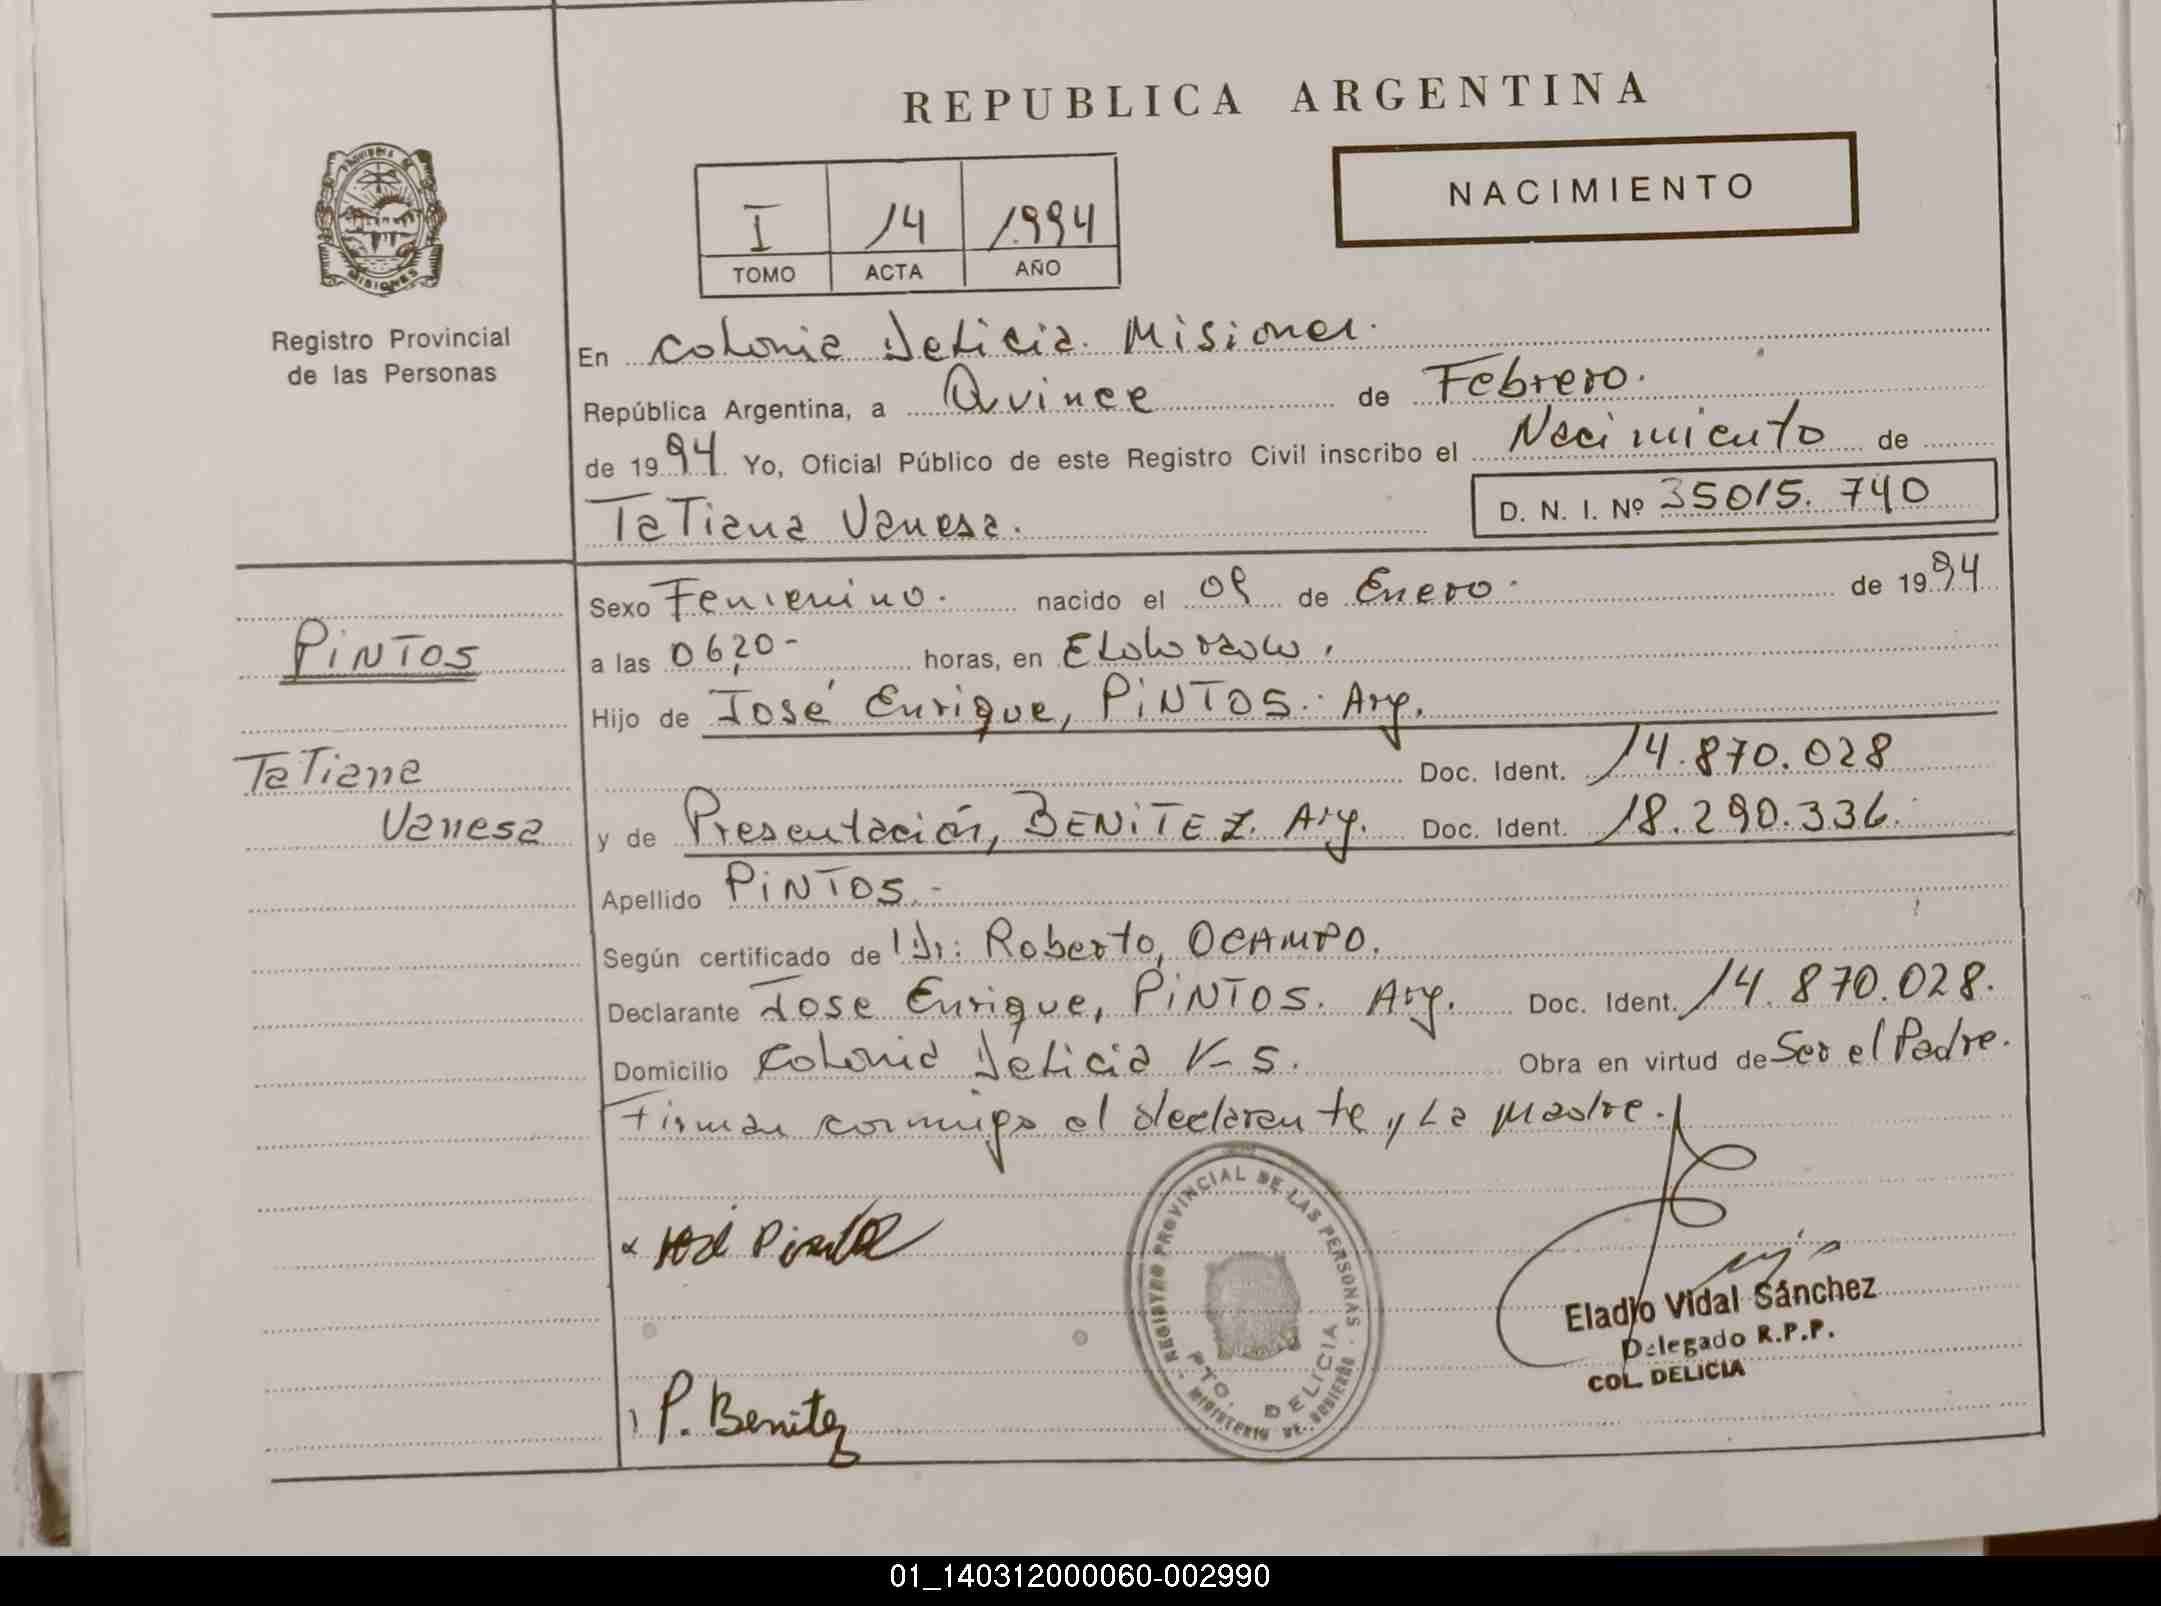 REPUBLICA ARGENTINA
NACIMIENTO
I 14 1994
TOMO ACTA AÑO
PROVINCIA DE MISIONES
Registro Provincial
de las Personas
En Colonia Delicia. Misiones.
República Argentina, a Quince de Febrero.
de 1994 Yo, Oficial Público de este Registro Civil inscribo el Nacimiento de
Tatiana Vanesa. D. N. I. Nº 35015.740
PINTOS
Tatiana
Vanesa
Sexo Femenino. nacido el 09 de Enero. de 1994
a las 06,20- horas, en Eldorado.
Hijo de José Enrique, PINTOS. Arg.
Doc. Ident. 14.870.028
y de Presentación, BENITEZ. Arg. Doc. Ident. 18.290.336.
Apellido PINTOS.-
Según certificado de Dr: Roberto, OCAMPO.
Declarante Jose Enrique, PINTOS. Arg. Doc. Ident. 14.870.028.
Domicilio Colonia Delicia K-5. Obra en virtud de Ser el Padre.
Firman conmigo el declarante y La Madre.
P. Benitez
REGISTRO PROVINCIAL DE LAS PERSONAS
PTO. DELICIA
MINISTERIO DE GOBIERNO
Eladio Vidal Sánchez
Delegado R.P.P.
COL. DELICIA
01_140312000060-002990